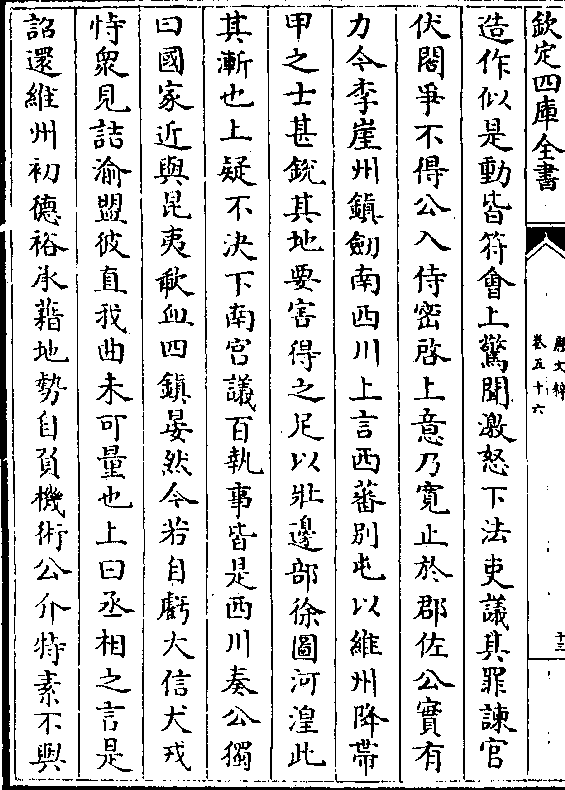 欽定四庫全書
唐文粹
卷五十六
十三
造作似是動皆符會上驚聞激怒下法吏議其罪諫官
伏閤爭不得公入侍密啓上意乃寛止於郡佐公實有
力令李崖州鎮劒南西川上言西蕃別屯以維州降帶
甲之士甚鋭其地要害得之足以壯邊部徐圖河湟此
其漸也上疑不決下南宮議百執事皆是西川奏公獨
曰國家近與昆夷歃血四鎮晏然今若自虧大信犬戎
恃衆見詰渝盟彼直我曲未可量也上曰丞相之言是
詔還維州初德裕承藉地勢自負機術公介特素不與